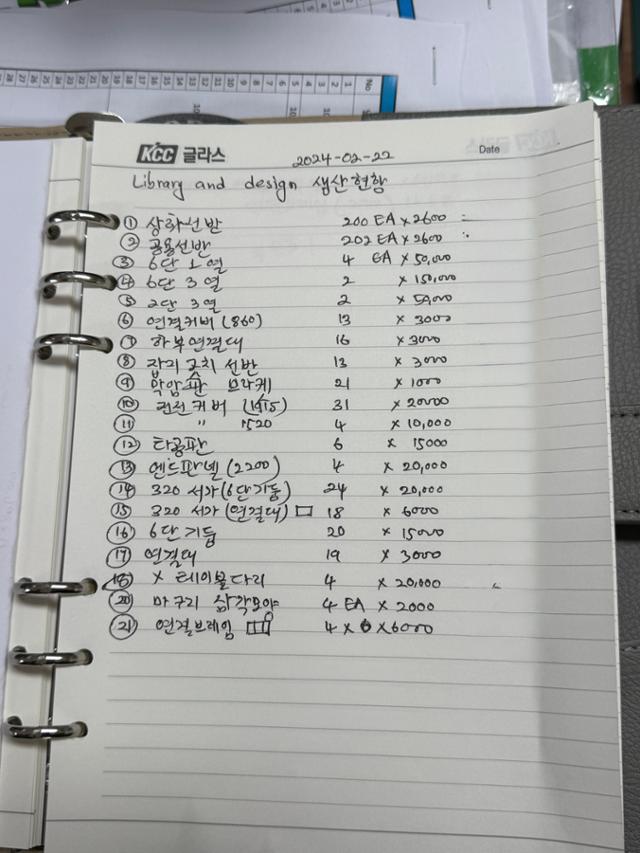 No 1 2 3 4 5 6 7 8 9 10 11 12 13 14 15 16 17 18 19 20 21 22 23 24 25 26 27 28
KCC 글라스 2024-02-22 Date
Library and design 생산현황
① 상하선반 200 EA × 2600
② 공용선반 202 EA × 2600
③ 6단 1열 4 EA × 50,000
④ 6단 3열 2 × 150,000
⑤ 2단 3열 2 × 50,000
⑥ 연결커버 (860) 13 × 3000
⑦ 하부연결대 16 × 3000
⑧ 잡지 선반 13 × 3000
⑨ 브라케 21 × 1000
⑩ 커버 31 × 20000
⑪ 〃 1520 4 × 10,000
⑫ 타공판 6 × 15000
⑬ 엔드판넬 (2200) 4 × 20,000
⑭ 320 서가 (6단기둥) 24 × 20,000
⑮ 320 서가 (연결대) 18 × 6000
⑯ 6단기둥 20 × 15000
⑰ 연결대 19 × 3000
⑱ × 테이블다리 4 × 20,000
⑳ 마구리 삼각모양 4 EA × 2000
㉑ 연결브레임 4 × 6 × 6000